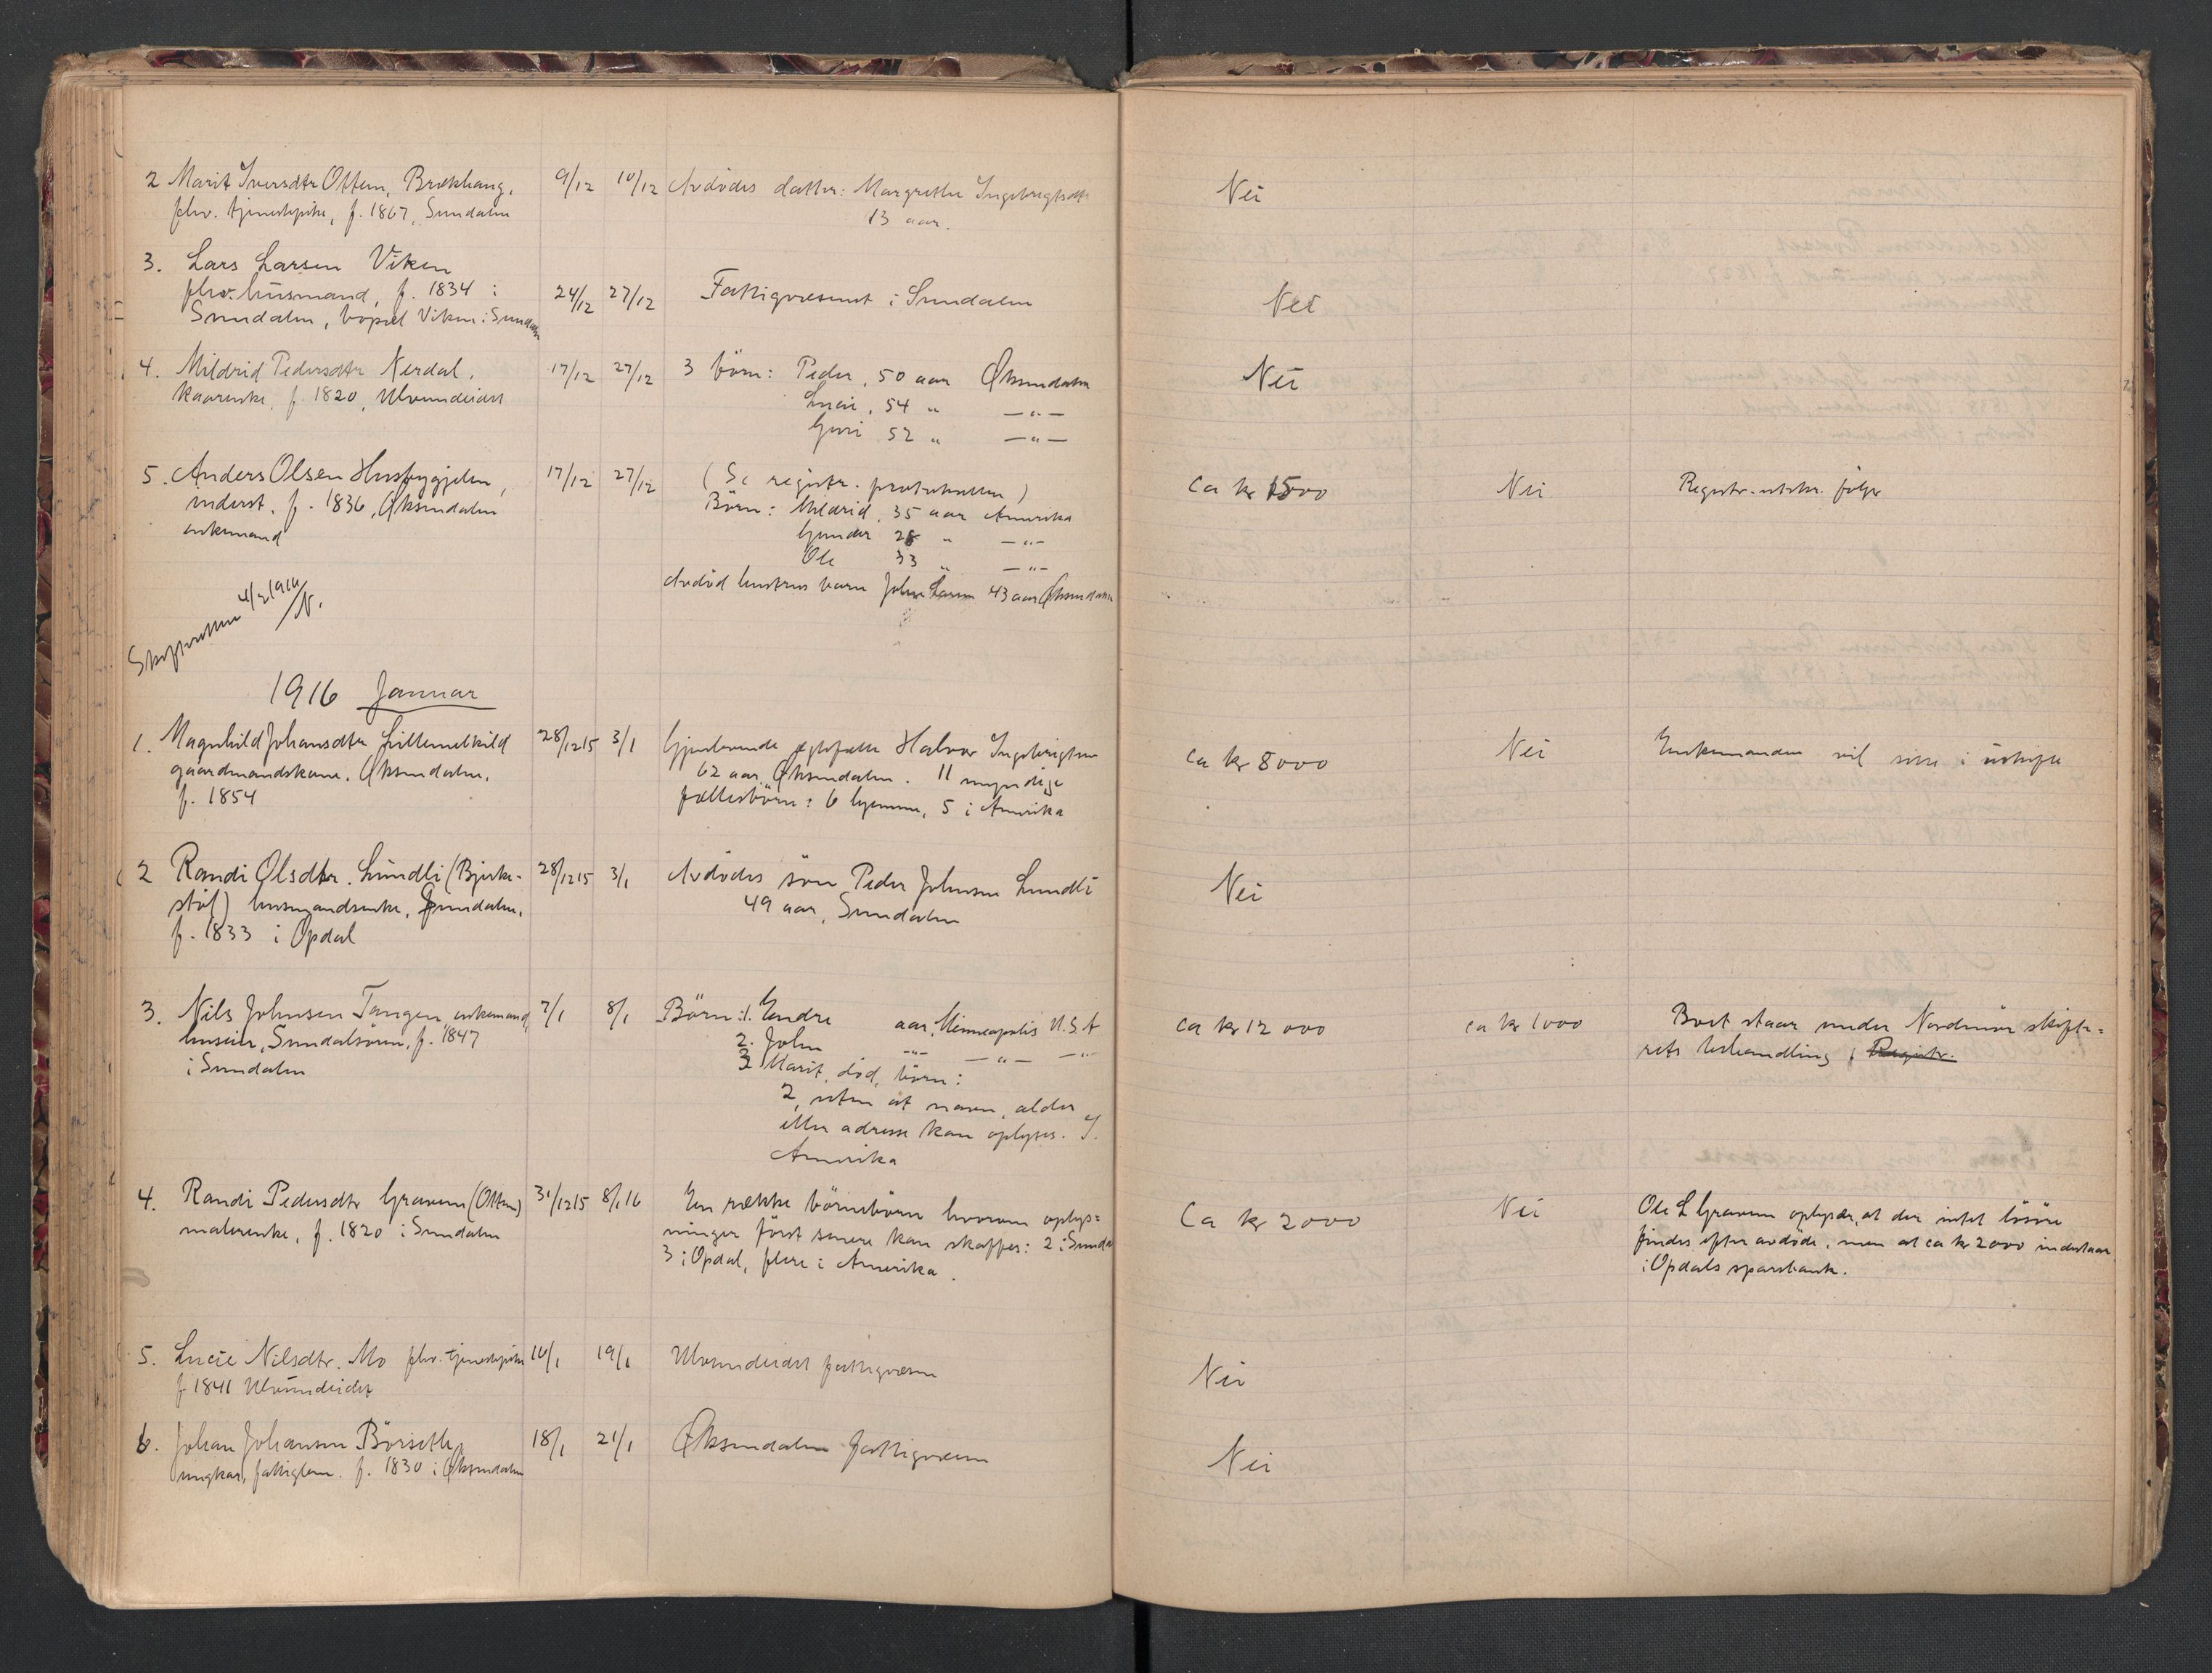 2 Marit Iversdtr Ottem, Brækhaug, 9/12 10/12 Avdödes datter: Margrethe Ingebrigtsdtr Nei
fhv. tjenestepike, f. 1867, Sundalen 13 aar.
3. Lars Larsen Viken
fhv. husmand, f. 1834 i 24/12 27/12 Fattigvæsenet i Sundalen Nei
Sundalen, bopæl Viken i Sundalen
4. Mildrid Pedersdtr Nerdal, 17/12 27/12 3 börn: Peder, 50 aar Öksendalen Nei
kaarenke, f. 1820, Ulvundeidet Lucie, 54 " —"—
Guri 52 " —"—
5. Anders Olsen Husbyggjelen, 17/12 27/12 (Se registr. protokollen) Ca kr 1500 Nei Registr.utskr. følger
inderst, f. 1836, Öksendalen Börn: Mildrid, 35 aar Amerika
enkemand Gunder 28 " —"—
Ole 33 " —"—
Avdöd hustrus barn John Larsen 43 aar Öksendalen
Skifteretten 4/2 1916
N.
1916 Januar
1. Magnhild Johansdtr Lillemelkild 28/12 15 3/1 Gjenlevende ektefælle Halvor Ingebrigtsen ca kr 8000 Nei Enkemanden vil sitte i uskifte
gaardmandskone, Öksendalen, 62 aar, Öksendalen. 11 myndige
f. 1854 fællesbörn: 6 hjemme, 5 i Amerika
2 Randi Olsdtr. Lundli (Bjerke- 28/12 15 3/1 Avdödes sön Peder Johnsen Lundli Nei
stöl) husmandsenke, Sundalen, 49 aar, Sundalen
f. 1833 i Opdal
3. Nils Johnsen Tangen, enkemand, 7/1 8/1 Börn: 1. Endre aar, Minneapolis U.S.A ca kr 12 000 ca kr 1000 Boet staar under Nordmör skifte=
huseier, Sundalsören, f. 1847 2. John —"— —"— —"— rets behandling, Registr.
i Sundalen 3 Marit, död, börn:
2, uten at navn, alder
eller adresse kan oplyses. I
Amerika
4. Randi Pedersdtr Gravem (Ottem) 31/12 15 8/1 16 En række börnebörn hvorom oplys= Ca kr 2000 Nei Ole L Gravem oplyser, at der intet lösöre
malerenke, f. 1820 i Sundalen ninger först senere kan skaffes: 2 i Sundal findes efter avdöde, men at ca kr 2000 indestaar
3 i Opdal, flere i Amerika. i Opdals sparebank.
5. Lucie Nilsdtr. Mo fhv. tjenestepike 10/1 19/1 Ulvundeidet fattigvæsen Nei
f 1841 Ulvundeidet
6. Johan Johansen Börseth, 18/1 21/1 Öksendalen fattigvæsen Nei
ungkar, fattiglem. f. 1830 i Öksendalen